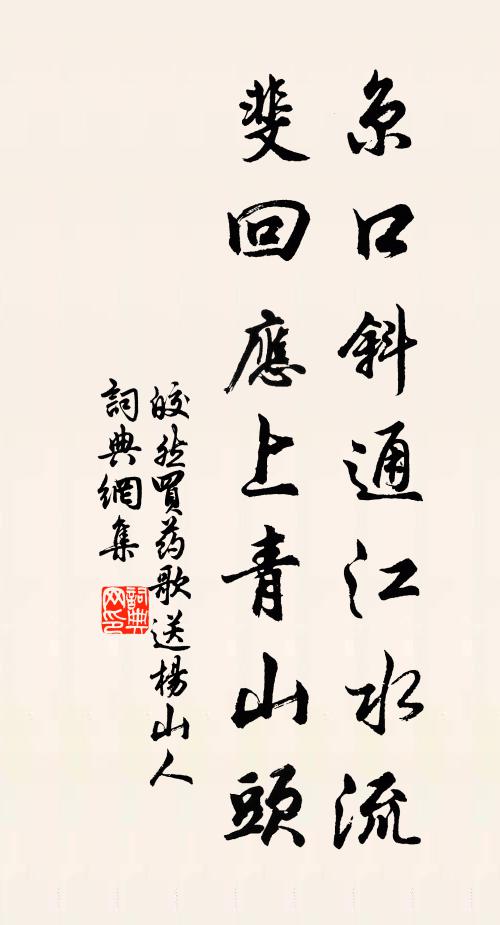 京口斜通江水流
斐回應上青山頭
皎然買药歌送楊山人
詞典網集
詞典网印